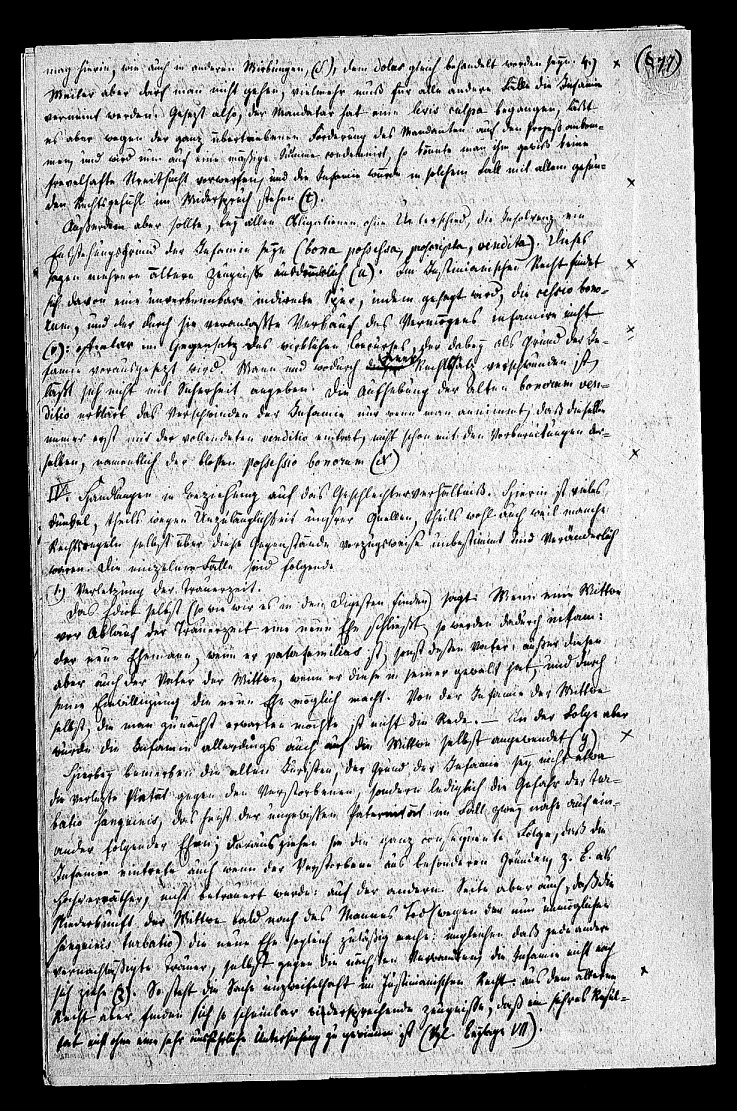 (§77)
mag hierin, wie auch in anderen Wirkungen, (s), dem dolus gleich behandelt worden seyn.
Weiter aber darf man nicht gehen, vielmehr muß für alle andere Fälle die Infamie
verneint werden. Gesetzt also, der Mandatar hat eine levis culpa begangen, läßt
es aber wegen der ganz übertriebenen Forderung des Mandanten auf den Prozeß ankom-
men, und wird nun auf eine mäßige Summe condemnirt, so könnte man ihm gewiß keine
frevelhafte Streitsucht vorwerfen, und die Infamie würde in solchem Fall mit allem gesun-
den Rechtsgefühl im Widerspruch stehen (t).
Außerdem aber sollte, bey allen Obligationen ohne Unterschied, die Insolvenz ein
Entstehungsgrund der Infamie seyn (bona possessa, proscripta, vendita). Dieses
sagen mehrere ältere Zeugnisse ausdrücklich (u). Im Justinianischen Recht findet
sich davon eine unverkennbare indirecte Spur, indem gesagt wird, die cessio bono-
rum, und der durch sie veranlaßte Verkauf des Vermögens infamire nicht
(v): offenbar im Gegensatz des wirklichen Concurses, der dabey als Grund der In-
famie vorausgesetzt wird. Wann und wodurch jener Rechtssatz verschwunden ist,
läßt sich nicht mit Sicherheit angeben. Die Aufhebung der alten bonorum ven-
ditio erklärt das Verschwinden der Infamie nur wenn man annimmt, daß dieselbe
immer erst mit der vollendeten venditio eintrat, nicht schon mit den Vorbereitungen der-
selben, namentlich der bloßen possessio bonorum (x)
IV. Handlungen in Beziehung auf das Geschlechtsverhältniß. Hierin ist vieles
dunkel, theils wegen Unzulänglichkeit unsrer Quellen, theils wohl auch weil manche
Rechtsregeln selbst über diese Gegenstände vorzugsweise unbestimmt und veränderlich
waren. Die einzelnen Fälle sind folgende
1.) Verletzung der Trauerzeit.
Das Edict selbst (so wie wir es in den Digesten finden) sagt: Wenn eine Wittwe
vor Ablauf der Trauerzeit eine neue Ehe schließt, so werden dadurch infam:
der neue Ehemann, wenn er paterfamilias ist, sonst dessen Vater: außer diesen
aber auch der Vater der Wittwe, wenn er diese in seiner Gewalt hat, und durch
seine Einwilligung die neue Ehe möglich macht. Von der Infamie der Wittwe
selbst, die man zunächst erwarten möchte, ist nicht die Rede. — In der Folge aber
wurde die Infamie allerdings auch auf die Wittwe selbst angewendet (y)
Hierbey bemerken die alten Juristen, der Grund der Infamie sey nicht etwa
die verletzte Pietät gegen den Verstorbenen, sondern lediglich die Gefahr der tur-
batio sanguinis, das heißt der ungewissen Paternität im Fall zwey nahe auf ein-
ander folgender Ehen; daraus ziehen sie die ganz consequente Folge, daß die
Infamie eintrete auch wenn der Verstorbene aus besonderen Gründen, z. B. als
Hochverräther, nicht betrauert werde: auf der andern Seite aber auch, daß die
Niederkunft der Wittwe bald nach des Mannes Tod (wegen der nun unmöglichen
sanguinis turbatio) die neue Ehe sogleich zulässig mache: imgleichen daß jede andere
vernachlässigte Trauer, selbst gegen die nächsten Verwandten, die Infamie nicht nach
sich ziehe (z). So steht die Sache unzweifelhaft im Justinianischen Recht: aus dem älteren
Recht aber finden sich so scheinbar widersprechende Zeugnisse, daß ein sichres Resul-
tat nicht ohne eine sehr ausführliche Untersuchung zu gewinnen ist (Vgl. Beylage VII).